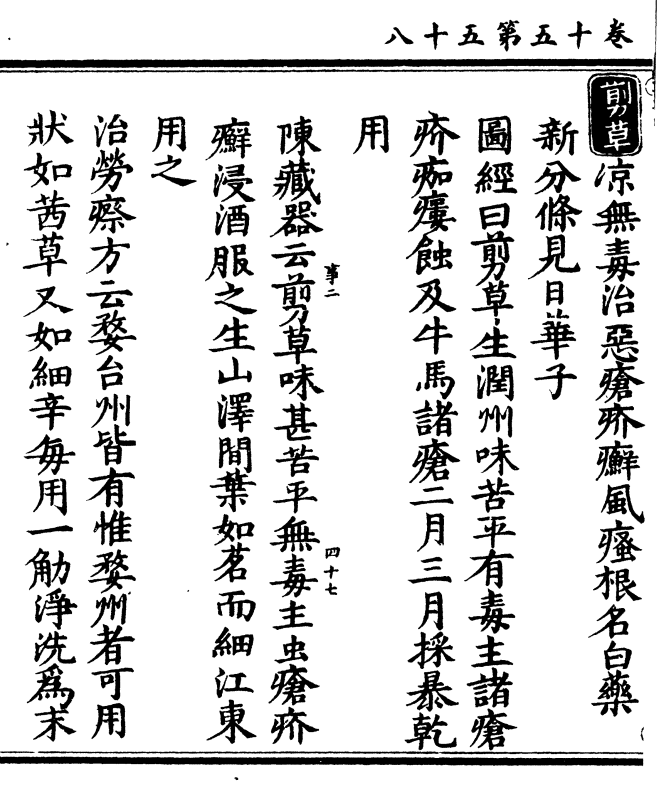 卷十五第五十八
剪草
凉無毒治惡瘡疥癬風瘙根名白藥
新分條見日華子
圖經曰剪草生潤州味苦平有毒主諸瘡
疥痂瘻蝕及牛馬諸瘡二月三月採暴乾
用
事二
四十七
陳藏器云剪草味甚苦平無毒主虫瘡疥
癬浸酒服之生山澤間葉如茗而細江東
用之
治勞瘵方云婺台州皆有惟婺州者可用
狀如茜草又如細辛每用一觔淨洗爲末